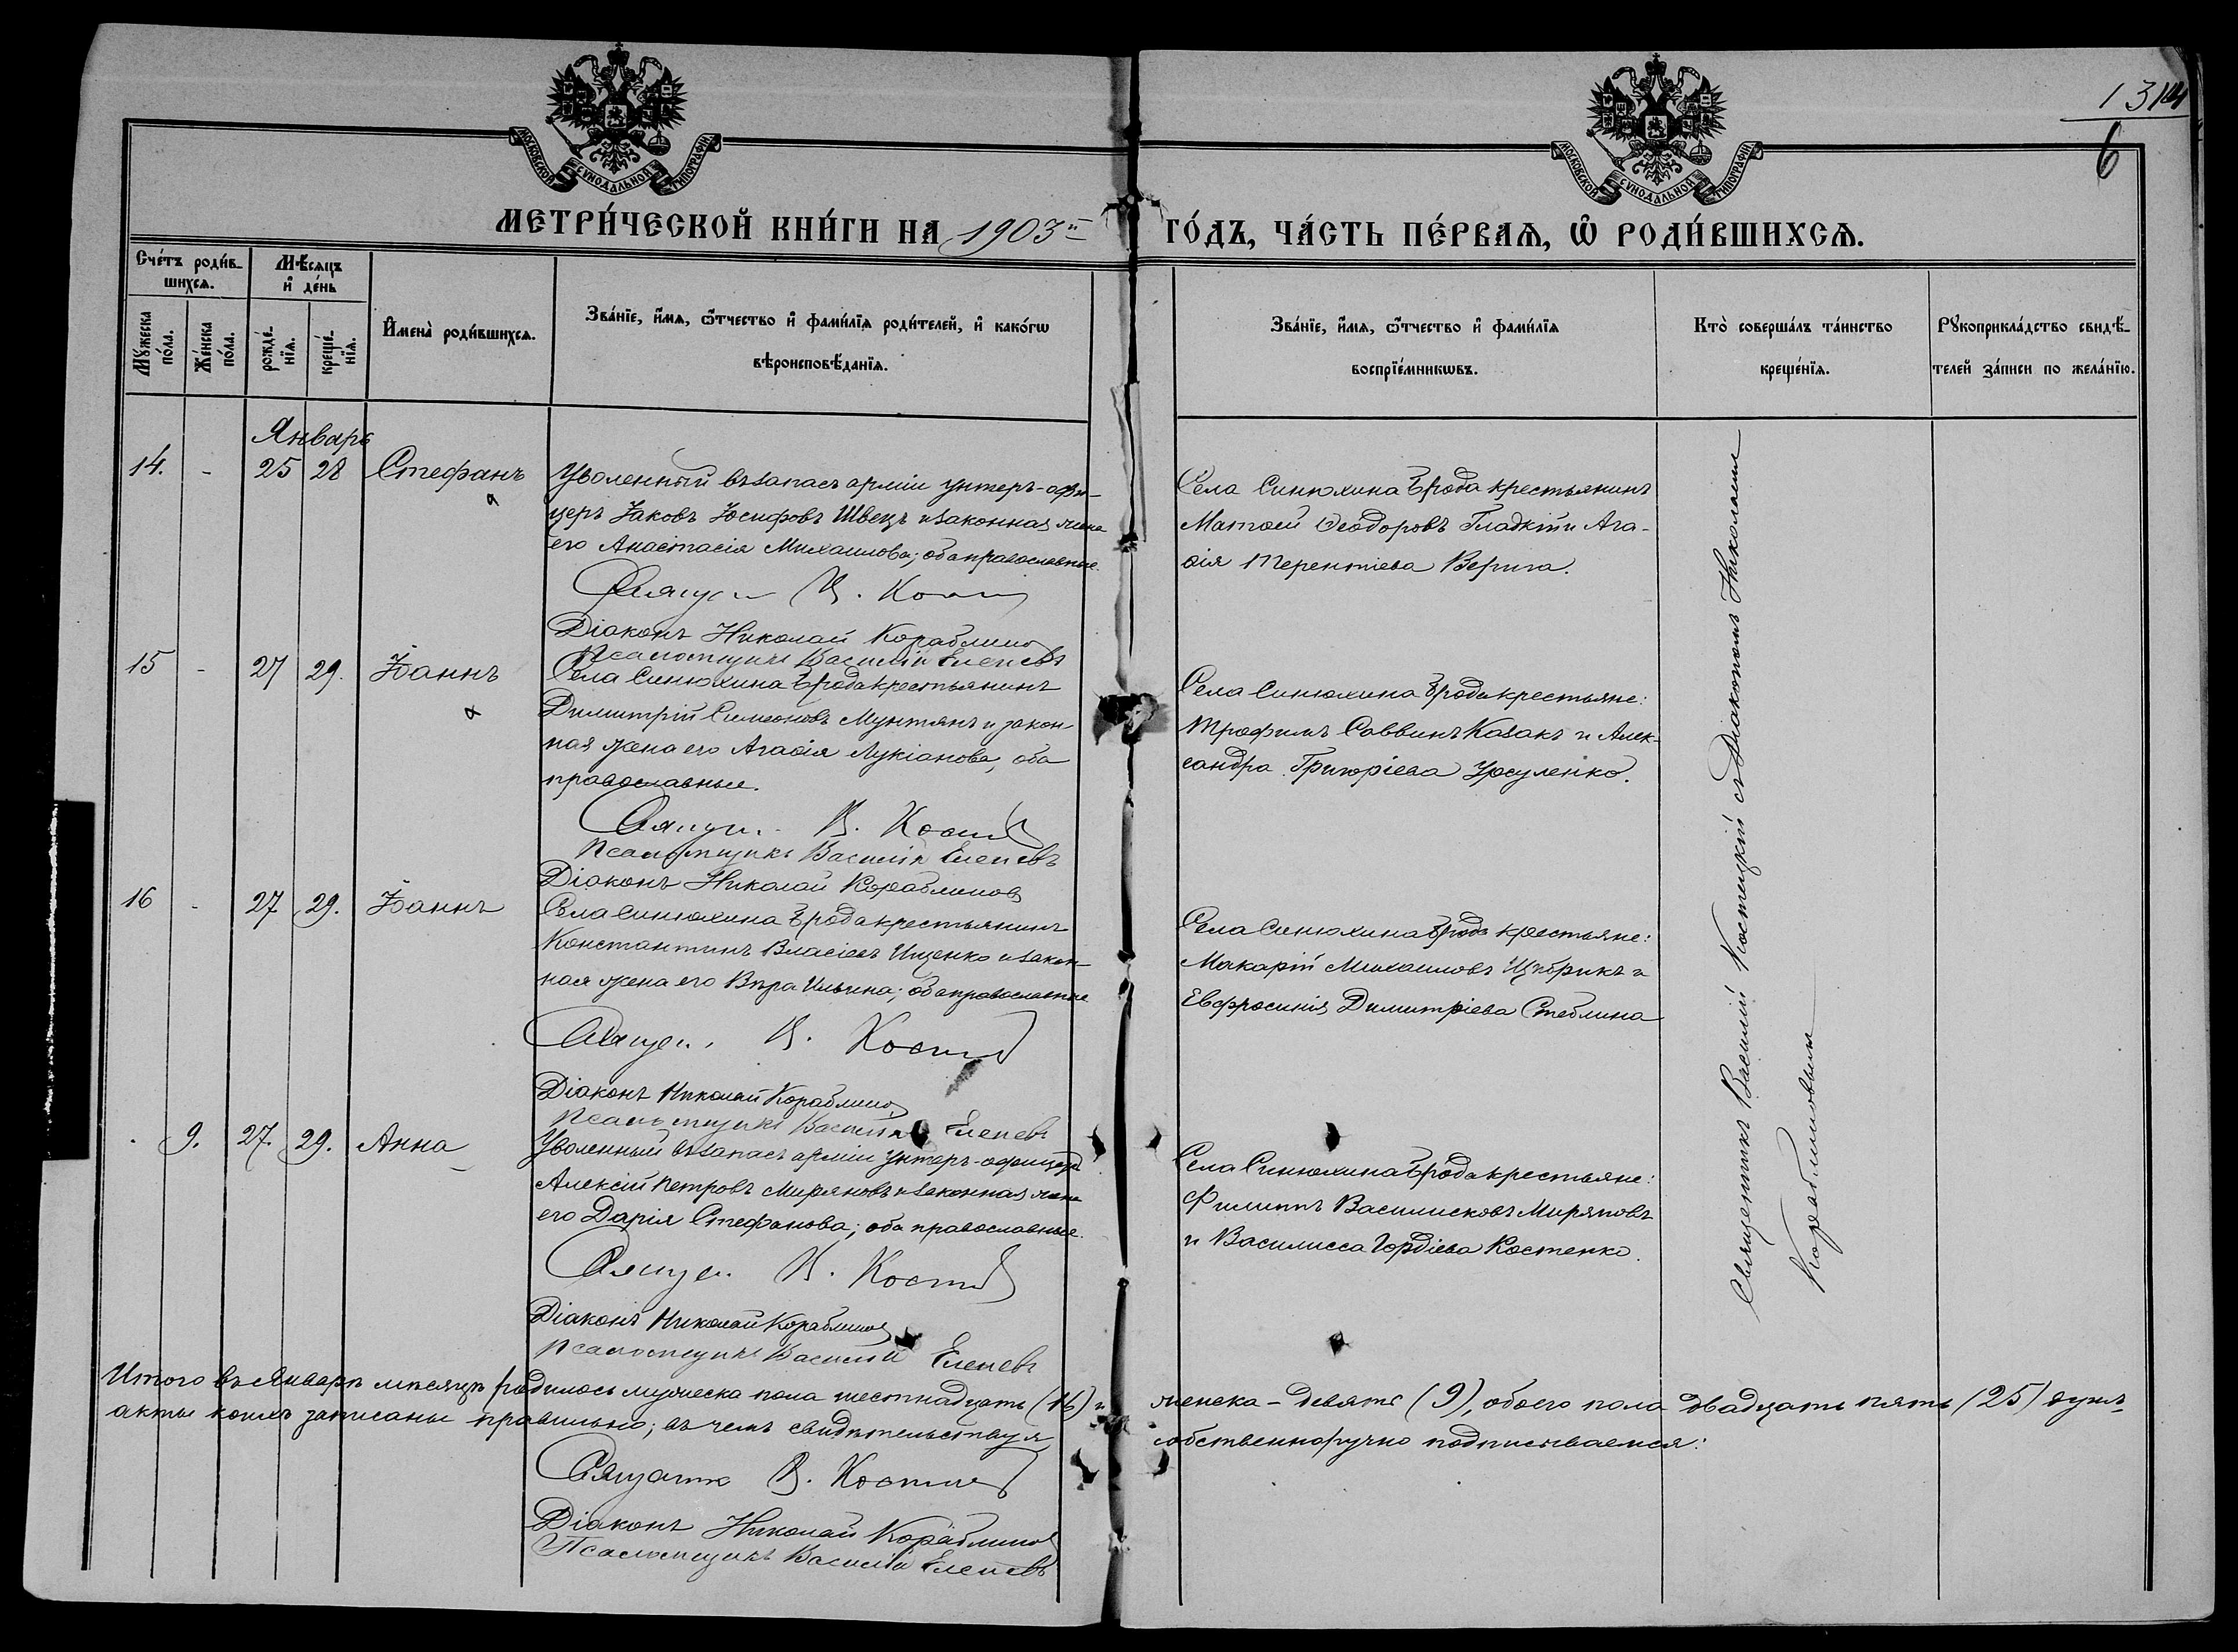 МОСКОВСКОЙ СУНОДАЛЬНОЙ ТИПОГРАФІИ.
МОСКОВСКОЙ СУНОДАЛЬНОЙ ТИПОГРАФІИ.
1314
6
МЕТРИ́ЧЕСКОЙ КНИ́ГИ НА 1903й ГО́ДЪ, ЧА́СТЬ ПЕ́РВАѦ, Ѡ҆ РОДИ́ВШИХСѦ.
Сче́тъ роди́в-
шихсѧ.
Мꙋжеска по́ла.
Же́нска по́ла.
Мѣ́сѧцъ
и҆ де́нь
рожде́-
нїѧ.
креще́-
нїѧ.
И҆мена̀ роди́вшихсѧ.
Зва́нїе, и҆́мѧ, ѻ҆́тчество и҆ фами́лїѧ роди́телей, и҆ како́гѡ
вѣроисповѣ́данїѧ.
Зва́нїе, и҆́мѧ, ѻ҆́тчество и҆ фами́лїѧ
воспрїе́мникѡвъ.
Кто̀ соверша́лъ та́инство
креще́нїѧ.
Рꙋкоприкла́дство свидѣ́-
телей за́писи по жела́нїю.
Январь
14. - 25 28 Стефанъ
Уволенный въ запасъ арміи унтеръ-офи-
церъ Іаковъ Іосифовъ Швецъ и законная жена
его Анастасія Михаилова; оба православные.
Священ. В. Кост
Діаконъ Николай Кораблинов
Псаломщикъ Василій Елепевъ
Села Синюхина Брода крестьянинъ
Матѳей Ѳеодоровъ Гладкій и Ага-
ѳія Терентіева Верига.
15 - 27 29. Іоаннъ
Села Синюхина Брода крестьянинъ
Димитрій Симеоновъ Мунтянъ и закон-
ная жена его Агаѳія Лукіанова, оба
православные.
Священ. В. Кост
Псаломщикъ Василій Елепевъ
Діаконъ Николай Кораблинов
Села Синюхина Брода крестьяне:
Трофимъ Саввинъ Казакъ и Алек-
сандра Григоріева Урсуленко.
16 - 27 29. Іоаннъ
Села Синюхина Брода крестьянинъ
Константинъ Власіевъ Ищенко и закон-
ная жена его Вѣра Ильина; оба православные
Священ. В. Кост
Діаконъ Николай Кораблинов
Псаломщикъ Василій Елепевъ
Села Синюхина Брода крестьяне:
Макарій Михаиловъ Цыбрикъ и
Евфросинія Димитріева Стеблина
. 9. 27. 29. Анна
Уволенный въ запасъ арміи унтеръ-офицеръ
Алексій Петровъ Миряновъ и законная жена
его Дарія Стефанова; оба православные.
Священ. В. Кост
Діаконъ Николай Кораблинов
Псаломщикъ Василій Елепевъ
Села Синюхина Брода крестьяне:
Филиппъ Василисковъ Миряновъ
и Василисса Гордіева Костенко.
Священникъ Василій Костецкій съ Діакономъ Николаемъ
Кораблиновымъ
Итого въ Январѣ мѣсяцѣ родилось мужеска пола шестнадцать (16) и женска - девять (9), обоего пола двадцать пять (25) душъ
акты коихъ записаны правильно; въ чемъ свидѣтельствуя, собственноручно подписываемся:
Священник В. Кост
Діаконъ Николай Кораблинов
Псаломщикъ Василій Елепевъ